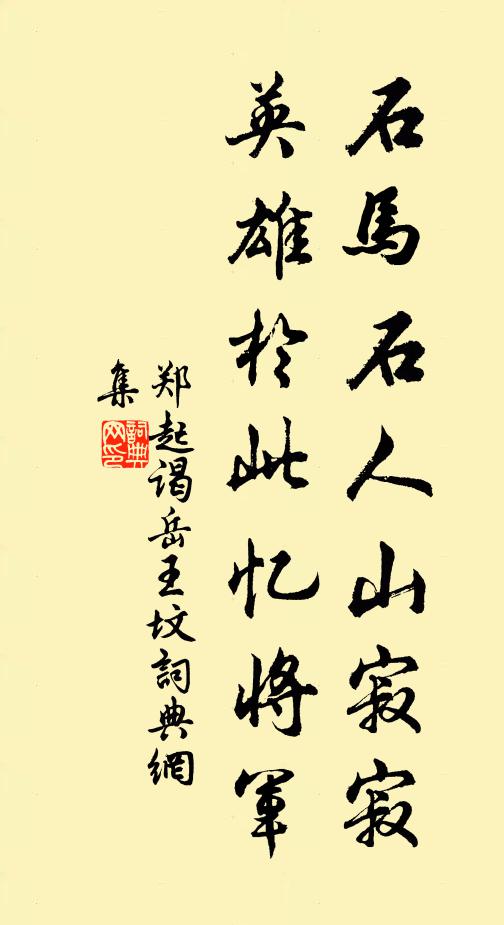 石馬石人山寂寂
英雄於此忆將軍
郑起谒岳王坟詞典網
集
詞典网印